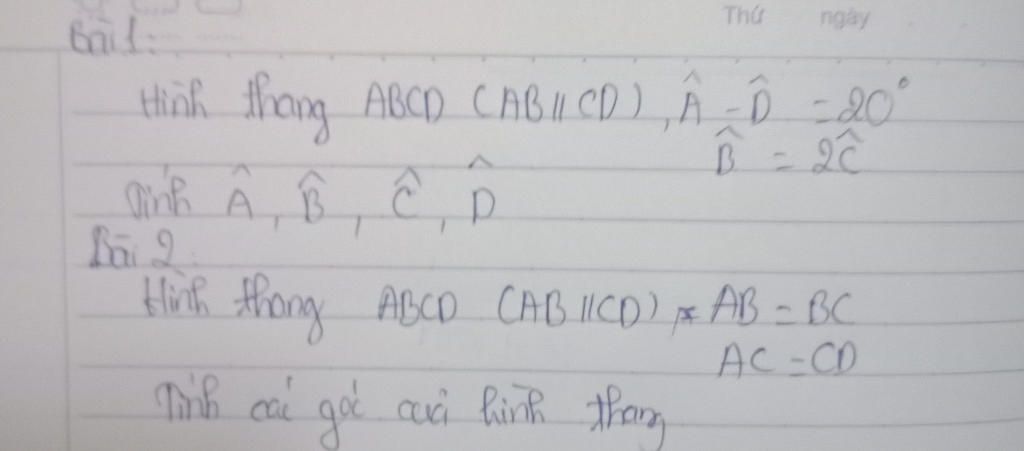 Thứ ngày
Bài 1:
Hình thang ABCD (AB // CD), Â - D̂ = 20°
B̂ = 2Ĉ
Tính Â, B̂, Ĉ, D̂
Bài 2:
Hình thang ABCD (AB // CD) AB = BC
AC = CD
Tính các góc của hình thang